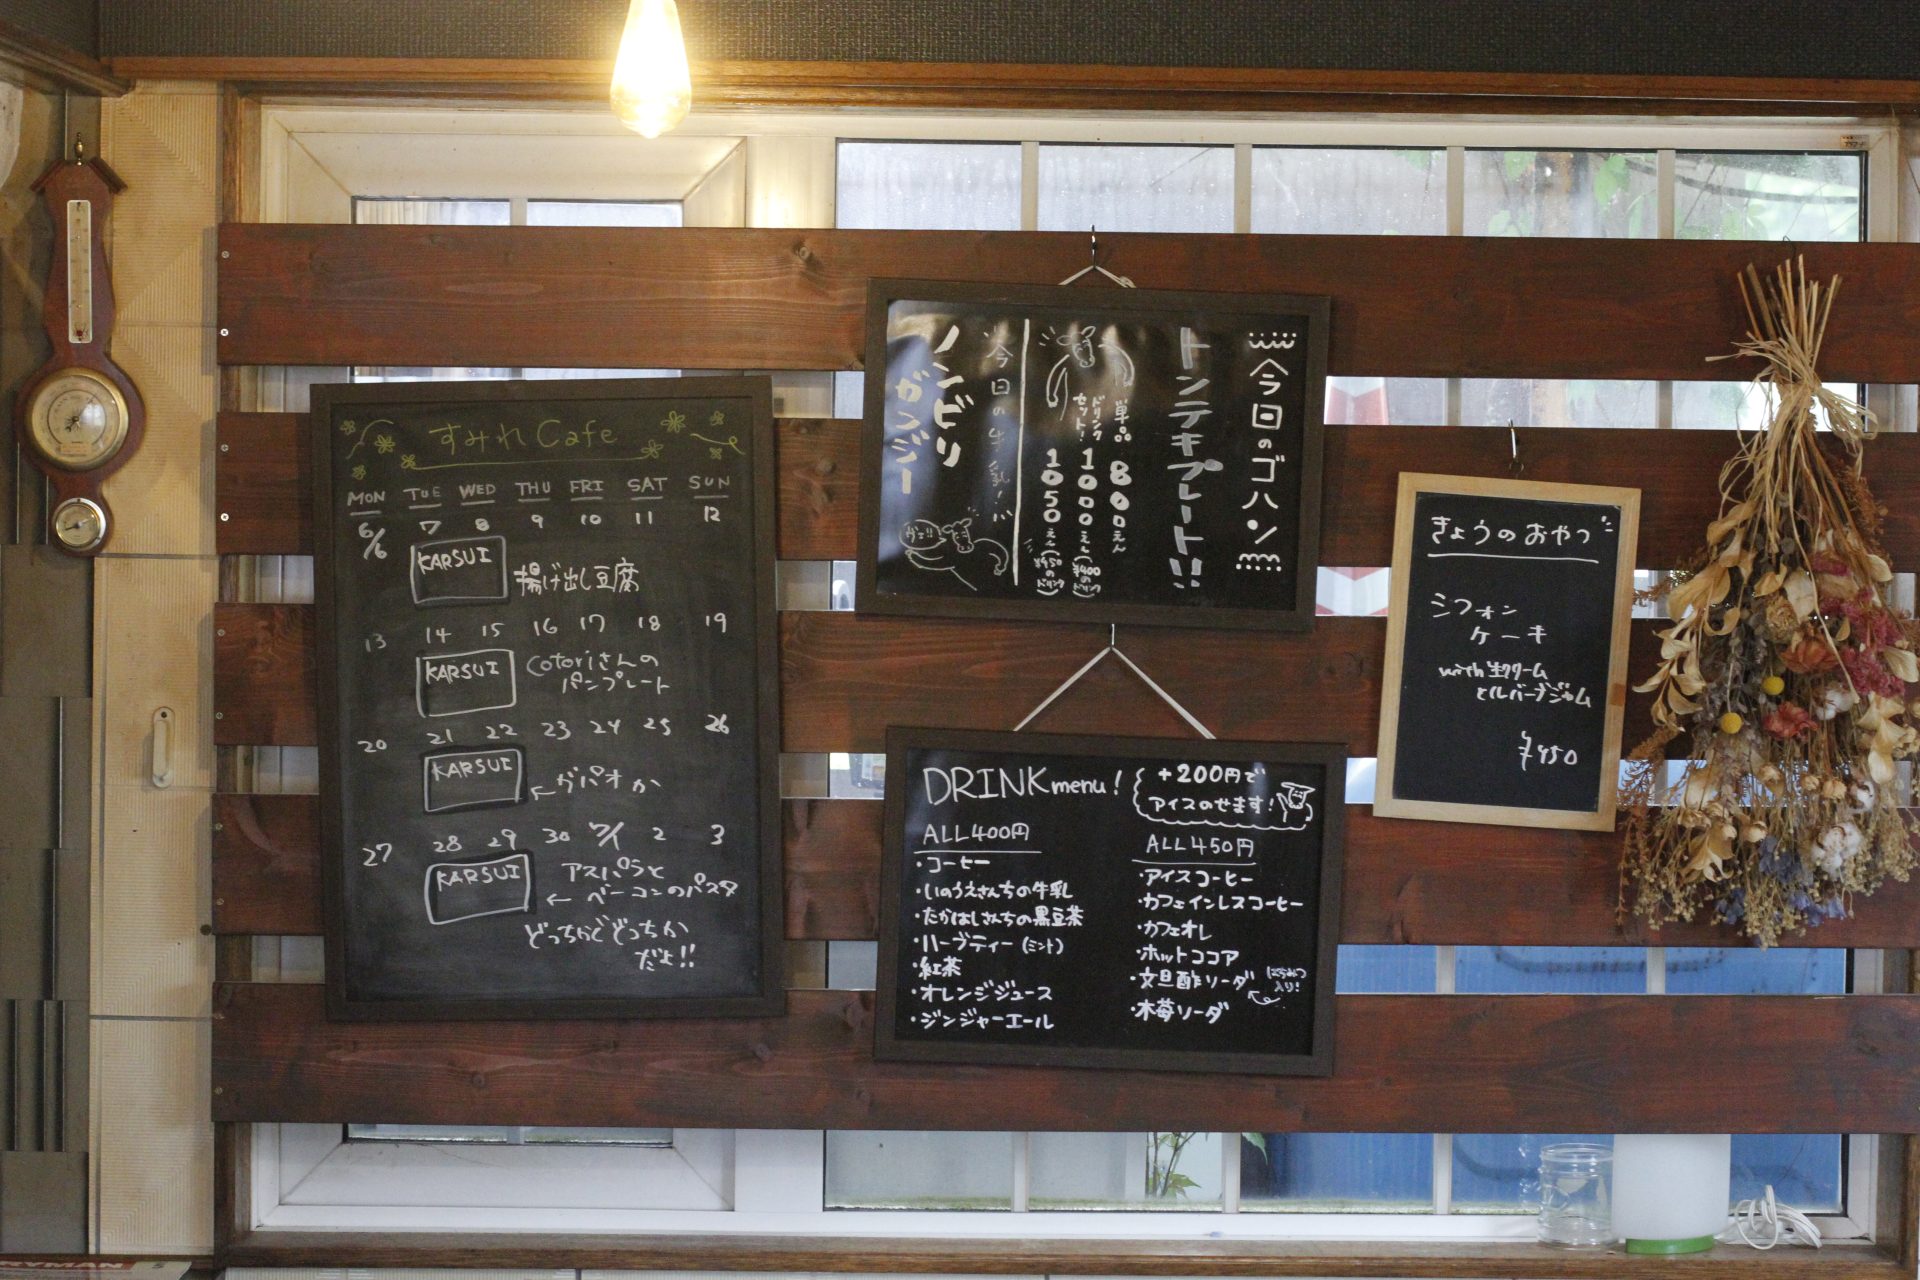 すみれ Cafe
MON TUE WED THU FRI SAT SUN
6/6 7 8 9 10 11 12
KARSUI
揚げ出し豆腐
13 14 15 16 17 18 19
KARSUI
Cotoriさんの
パンプレート
20 21 22 23 24 25 26
KARSUI
←ガパオか
27 28 29 30 7/1 2 3
KARSUI
アスパラと
← ベーコンのパスタ
どっちかどっちか
だよ!!
今日のゴハン
トンテキプレート!!
単品 800えん
ドリンクセット! 1000えん (¥400のドリンク)
1050えん (¥450のドリンク)
今日の牛乳!
ノンビリ
ガンジー
DRINK menu!
+200円で
アイスのせます!
ALL400円
・コーヒー
・いのうえさんちの牛乳
・たかはしさんちの黒豆茶
・ハーブティー (ミント)
・紅茶
・オレンジジュース
・ジンジャーエール
ALL450円
・アイスコーヒー
・カフェインレスコーヒー
・カフェオレ
・ホットココア
・文旦酢ソーダ
はちみつ
入り!
・木苺ソーダ
きょうのおやつ
シフォン
ケーキ
with 生クリーム
とルバーブジャム
¥450
NYMAN